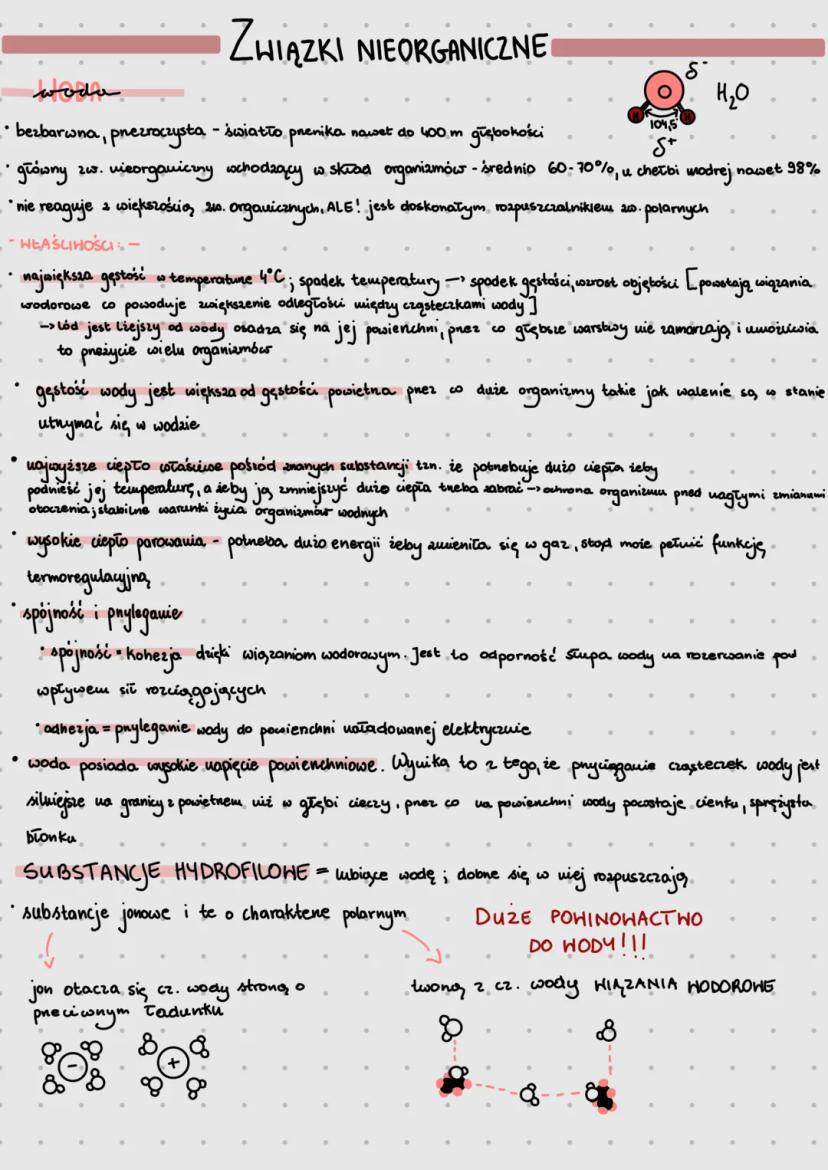 ZWIĄZKI NIEORGANICZNE
woda
δ-
H₂O
104,5
δ+
O
H
H
• bezbarwna, przezroczysta - światło przenika nawet do 400 m głębokości
• główny zw. nieorganiczny wchodzący w skład organizmów - średnio 60-70%, u chełbi modrej nawet 98%
• nie reaguje z większością zw. organicznych, ALE! jest doskonałym rozpuszczalnikiem zw. polarnych
- WŁAŚCIWOŚCI: -
• największa gęstość w temperaturze 4°C; spadek temperatury → spadek gęstości, wzrost objętości [powstają wiązania
wodorowe co powoduje zwiększenie odległości między cząsteczkami wody]
→ lód jest lżejszy od wody osadza się na jej powierzchni, przez co głębsze warstwy nie zamarzają i umożliwia
to przeżycie wielu organizmów
• gęstość wody jest większa od gęstości powietrza przez co duże organizmy takie jak walenie są w stanie
utrzymać się w wodzie
• najwyższe ciepło właściwe pośród znanych substancji tzn. że potrzebuje dużo ciepła żeby
podnieść jej temperaturę, a żeby ją zmniejszyć dużo ciepła trzeba zabrać → ochrona organizmu przed nagłymi zmianami
otoczenia; stabilne warunki życia organizmów wodnych
• wysokie ciepło parowania - potrzeba dużo energii żeby zmieniła się w gaz, stąd może pełnić funkcję
termoregulacyjną
• spójność i przyleganie
• spójność = kohezja dzięki wiązaniom wodorowym. Jest to odporność słupa wody na rozerwanie pod
wpływem sił rozciągających
• adhezja = przyleganie wody do powierzchni naładowanej elektrycznie
• woda posiada wysokie napięcie powierzchniowe. Wynika to z tego, że przyciąganie cząsteczek wody jest
silniejsze na granicy z powietrzem niż w głębi cieczy, przez co na powierzchni wody pozostaje cienka, sprężysta
błonka
SUBSTANCJE HYDROFILOWE = lubiące wodę; dobrze się w niej rozpuszczają
• substancje jonowe i te o charakterze polarnym
DUŻE POWINOWACTWO
DO WODY!!!
jon otacza się cz. wody stroną o
przeciwnym ładunku
tworzą z cz. wody WIĄZANIA WODOROWE
-
+